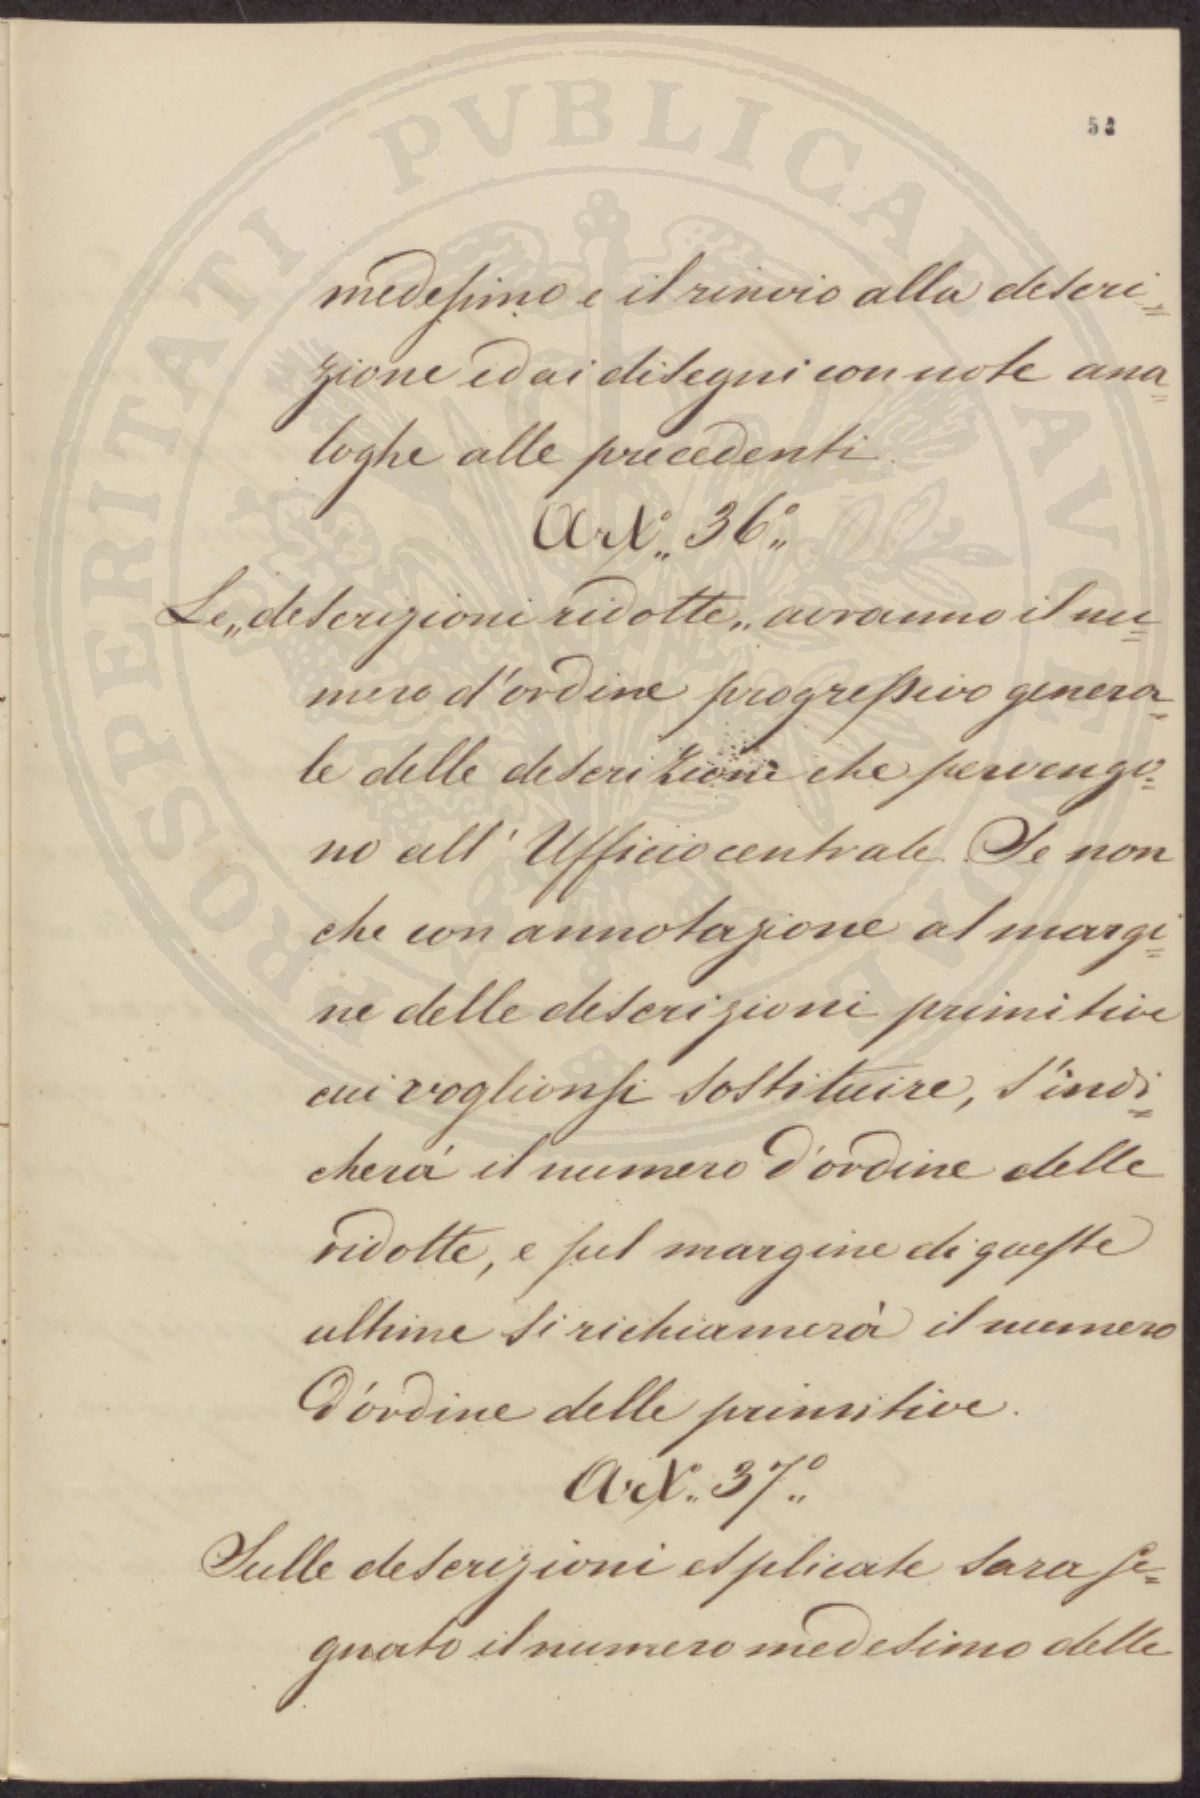 52
PROSPERITATI PVBLICAE AVGENDAE
medesimo e il rinvio alla descri=
zione ed ai disegni con note ana=
loghe alle precedenti
Art.° „ 36.° „
Le „ descrizioni ridotte „ avranno il nu=
mero d'ordine progressivo genera=
le delle descrizioni che pervengo=
no all' Ufficio centrale. Se non
che con annotazione al margi=
ne delle descrizioni primitive
cui voglionsi sostituire, s'indi=
cherà il numero d'ordine delle
ridotte, e sul margine di queste
ultime si richiamerà il numero
d'ordine delle primitive.
Art.° „ 37.° „
Sulle descrizioni esplicate sara se=
gnato il numero medesimo delle